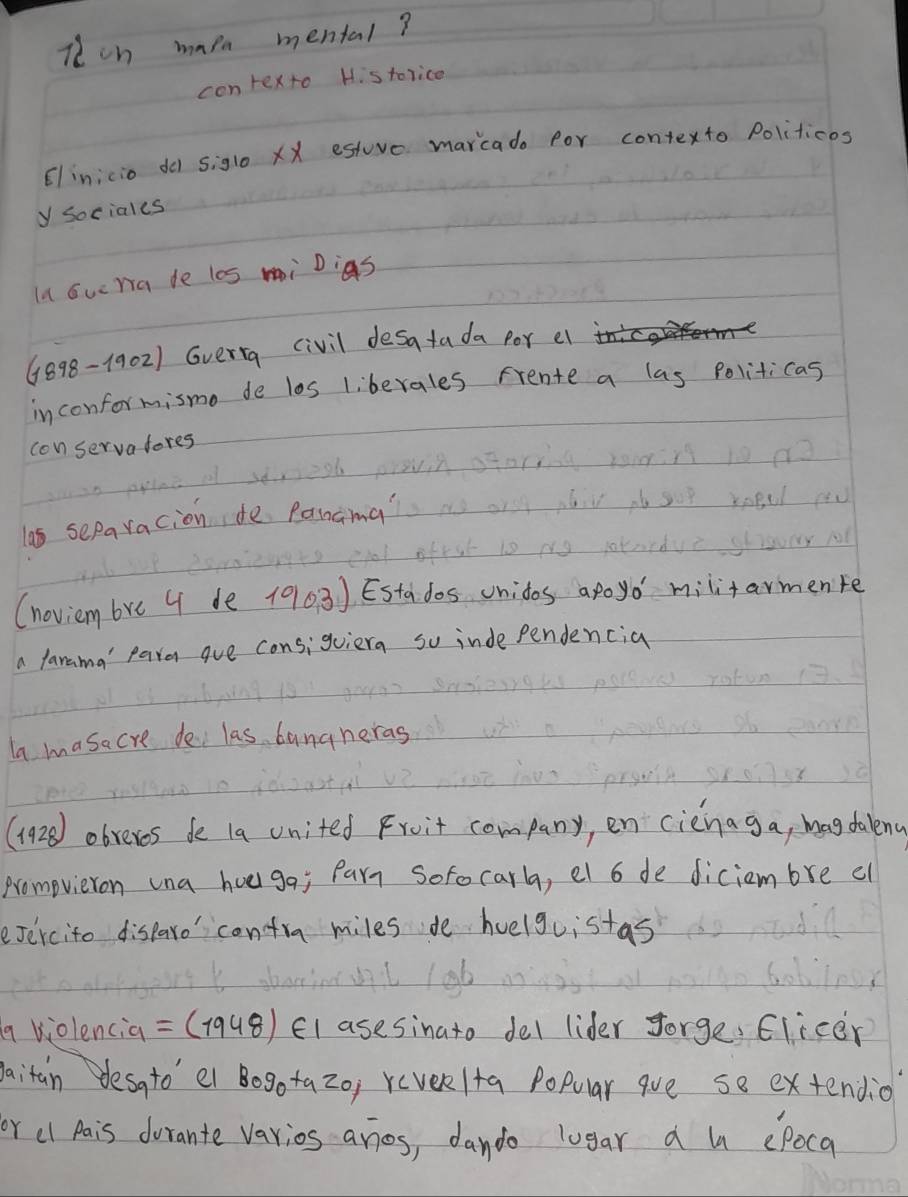 un mapa mental?
contexto Historico
El inicio del siglo XX estuvo marcado por contexto Politicos
y sociales
la Guerra de los mi Dias
(1898-1902) Guerra civil desatada por el
inconformismo de los liberales frente a las Politicas
conservadores
las separación de Panamá
(noviembre 4 de 1903) Estados unidos apoyó militarmente
a Panamá para que consiguiera su independencia
la masacre de las bananeras
(1928) obreros de la united Fruit company, en ciénaga, magdalena
promovieron una huelga; Para Sofocarla, el 6 de diciembre el
ejército disparó contra miles de huelguistas
la violencia = (1948) El asesinato del lider Jorge Eliécer
gaitán desató el Bogotazo, revuelta Popular que se extendió
por el Pais durante varios años, dando lugar a la época
Norma